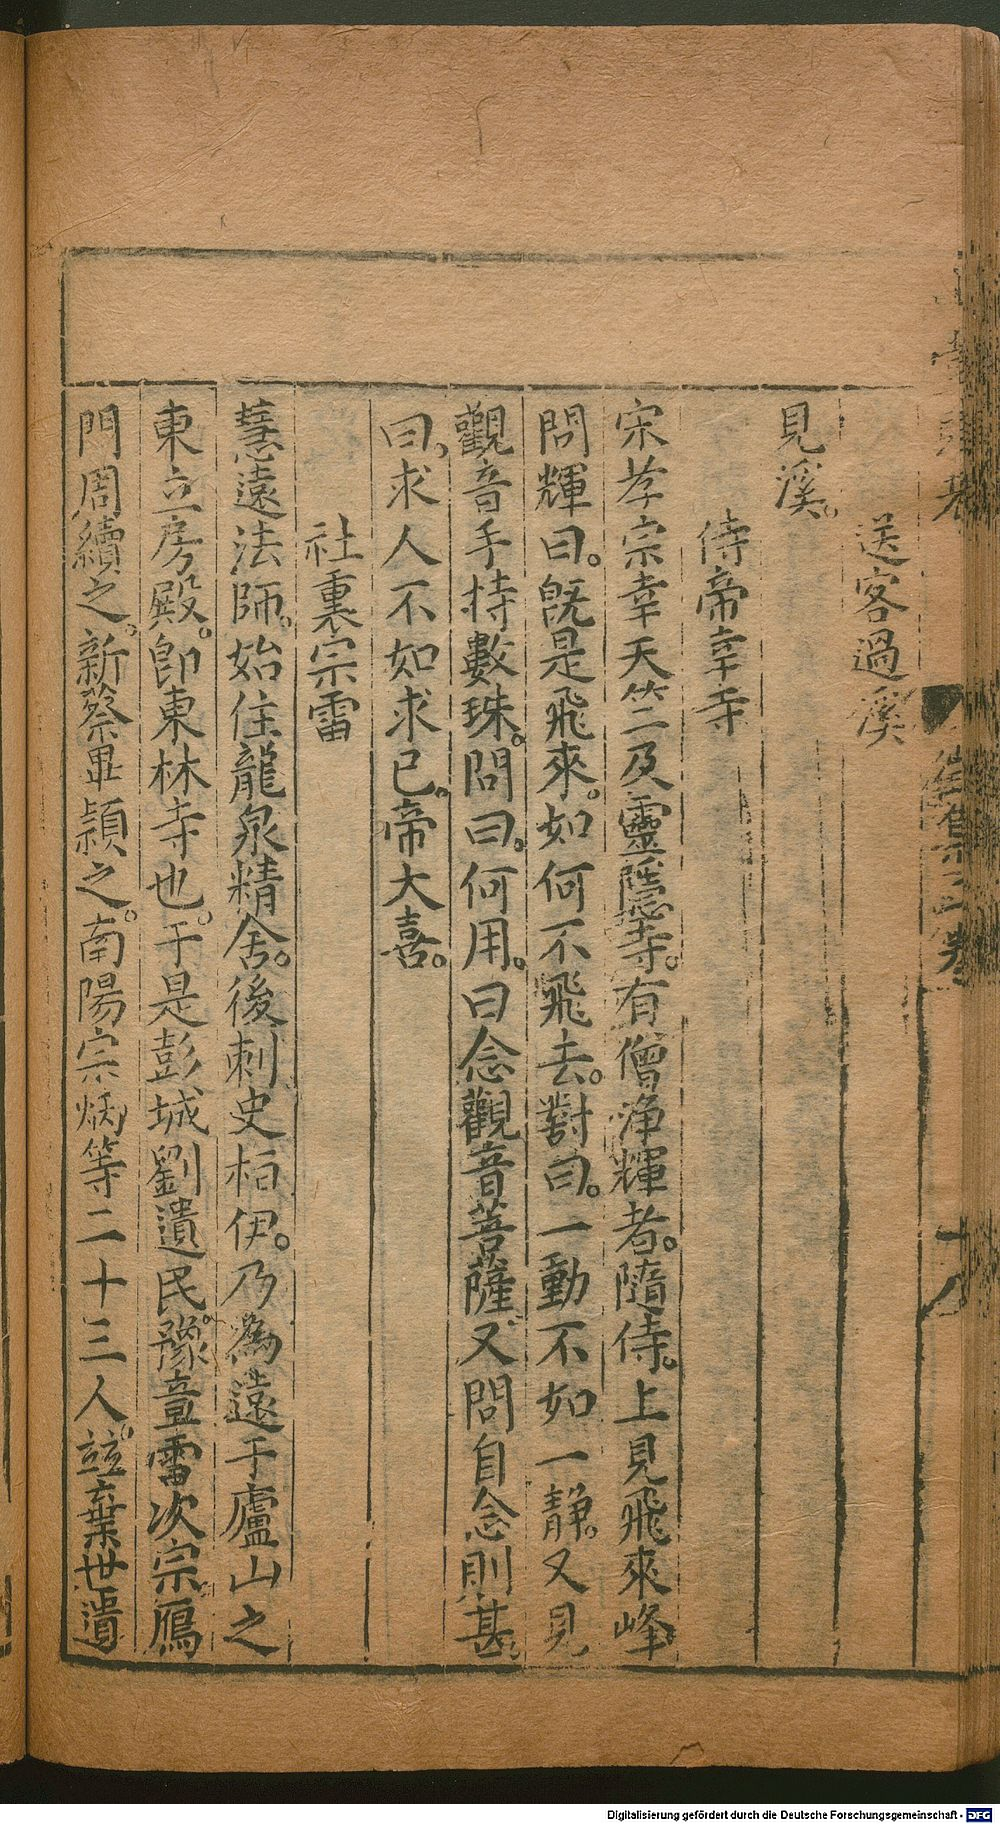 送客過溪
見溪。
侍帝幸寺
宋孝宗幸天竺及靈隱寺。有僧淨輝者。隨侍。上見飛來峰
問輝曰。旣是飛來。如何不飛去。對曰。一動不如一靜。又見
觀音手持數珠。問曰。何用。曰念觀音菩薩、又問自念則甚。
曰、求人不如求已。帝大喜。
社裏宗雷
慧遠法師。始住龍泉精舍。後刺史桓伊。乃為遠于廬山之
東立房殿。卽東林寺也。于是彭城劉遺民。豫章雷次宗。鴈
門周續之。新蔡畢頴之。南陽宗炳等二十三人。竝棄世遺
Digitalisierung gefördert durch die Deutsche Forschungsgemeinschaft - DFG